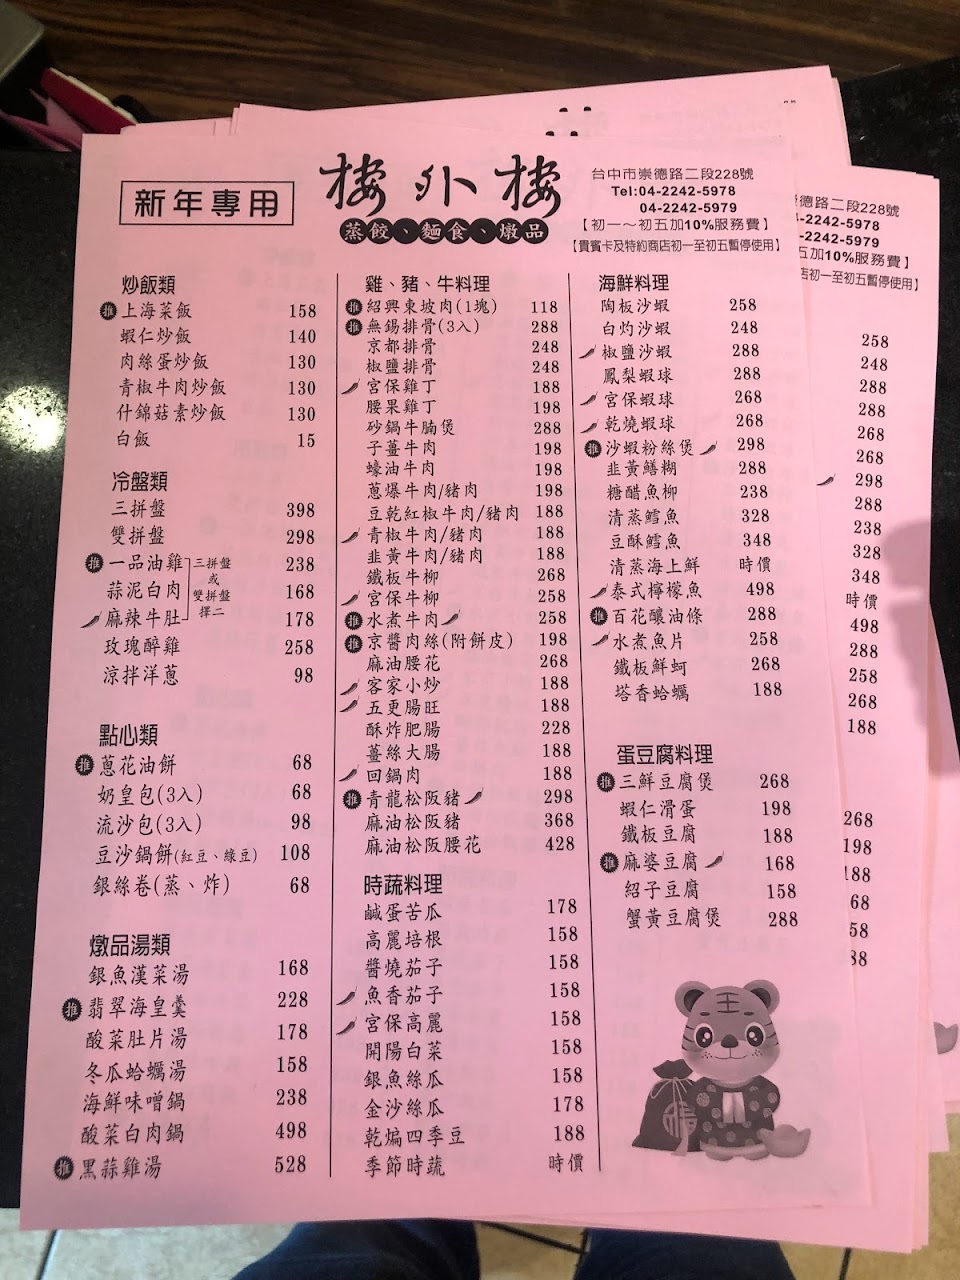 新年專用
樓外樓
蒸餃、麵食、燉品
台中市崇德路二段228號
Tel:04-2242-5978
04-2242-5979
【初一～初五加10%服務費】
【貴賓卡及特約商店初一至初五暫停使用】
炒飯類
推 上海菜飯 158
蝦仁炒飯 140
肉絲蛋炒飯 130
青椒牛肉炒飯 130
什錦菇素炒飯 130
白飯 15
冷盤類
三拼盤 398
雙拼盤 298
推 一品油雞 238
蒜泥白肉 168
麻辣牛肚 178
三拼盤
或
雙拼盤
擇二
玫瑰醉雞 258
涼拌洋蔥 98
點心類
推 蔥花油餅 68
奶皇包(3入) 68
流沙包(3入) 98
豆沙鍋餅(紅豆、綠豆) 108
銀絲卷(蒸、炸) 68
燉品湯類
銀魚漢菜湯 168
推 翡翠海皇羹 228
酸菜肚片湯 178
冬瓜蛤蠣湯 158
海鮮味噌鍋 238
酸菜白肉鍋 498
推 黑蒜雞湯 528
雞、豬、牛料理
推 紹興東坡肉(1塊) 118
推 無錫排骨(3入) 288
京都排骨 248
椒鹽排骨 248
宮保雞丁 188
腰果雞丁 198
砂鍋牛腩煲 288
子薑牛肉 198
蠔油牛肉 198
蔥爆牛肉/豬肉 198
豆乾紅椒牛肉/豬肉 188
青椒牛肉/豬肉 188
韭黃牛肉/豬肉 188
鐵板牛柳 268
宮保牛柳 258
推 水煮牛肉 258
推 京醬肉絲(附餅皮) 198
麻油腰花 268
客家小炒 188
五更腸旺 188
酥炸肥腸 228
薑絲大腸 188
回鍋肉 188
推 青龍松阪豬 298
麻油松阪豬 368
麻油松阪腰花 428
時蔬料理
鹹蛋苦瓜 178
高麗培根 158
醬燒茄子 158
魚香茄子 158
宮保高麗 158
開陽白菜 158
銀魚絲瓜 158
金沙絲瓜 178
乾煸四季豆 188
季節時蔬 時價
海鮮料理
陶板沙蝦 258
白灼沙蝦 248
椒鹽沙蝦 288
鳳梨蝦球 288
宮保蝦球 268
乾燒蝦球 268
推 沙蝦粉絲煲 298
韭黃鱔糊 288
糖醋魚柳 238
清蒸鱈魚 328
豆酥鱈魚 348
清蒸海上鮮 時價
泰式檸檬魚 498
推 百花釀油條 288
水煮魚片 258
鐵板鮮蚵 268
塔香蛤蠣 188
蛋豆腐料理
推 三鮮豆腐煲 268
蝦仁滑蛋 198
鐵板豆腐 188
推 麻婆豆腐 168
紹子豆腐 158
蟹黃豆腐煲 288
福
德路二段228號
-2242-5978
-2242-5979
五加10%服務費】
店初一至初五暫停使用】
258
248
288
288
268
268
298
288
238
328
348
時價
498
288
258
268
188
268
198
188
68
58
88